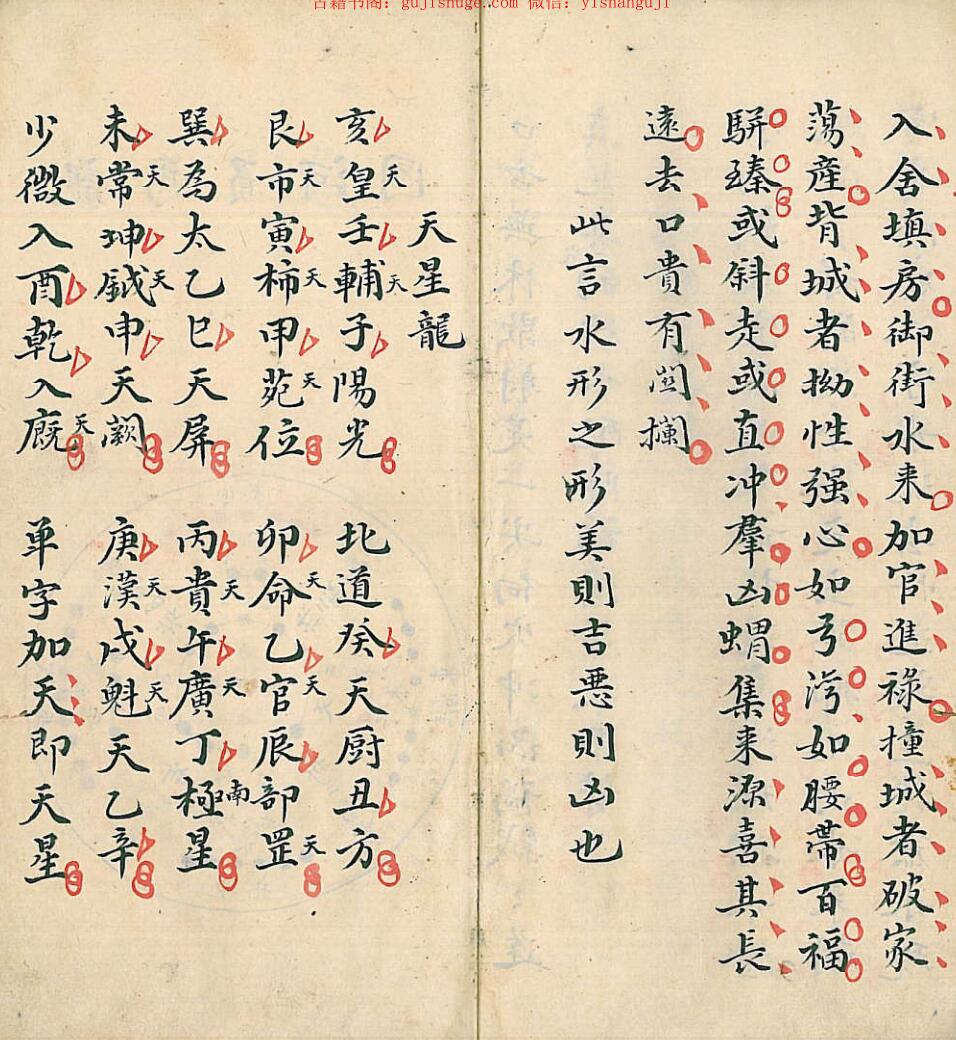 古籍书阁：gujishuge.com 微信：yishanguji
入舍填房御街水来加官進祿撞城者破家
蕩產背城者拗性强心如弓湾如腰帶百福
駢臻或斜走或直冲羣凶蝟集来源喜其長
遠去口貴有関攔
此言水形之形美則吉悪則凶也
天星龍
亥皇天壬輔天子陽光 北道癸天厨丑方
艮市天寅柿天甲苑天位 卯命天乙官天辰部罡天
巽為太乙巳天屏 丙貴天午廣天丁極南星
未常天坤鉞天申天闕 庚漢天戌魁天天乙辛
少微入酉乾入廐天 单字加天即天星